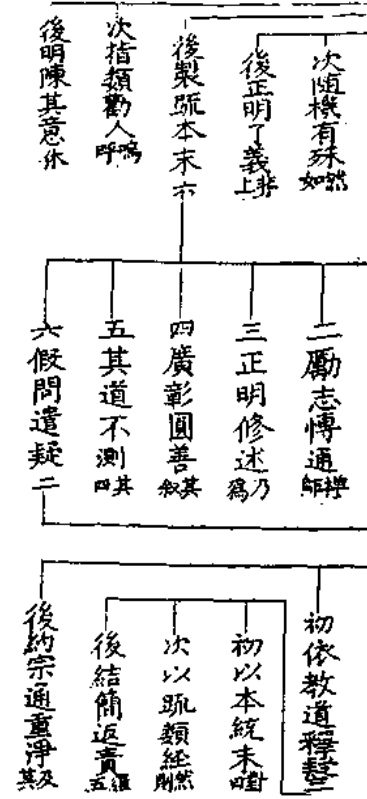 次隨機有殊 然如
後正明了義 非上
後製疏本末六
次指類勸人 嗚呼
後明陳其意 休
二勵志博通 禪師
三正明修述 乃爲
四廣彰圓善 其叙
五其道不測 其四
六假問遣疑二
初依教道釋二
初以本統末 對曰
次以疏類經 然則
後結簡返責 五
後納宗通重淨 及其